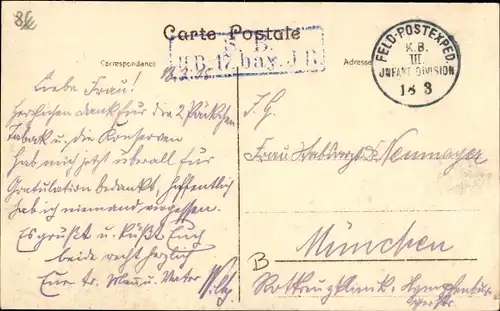 Carte Postale
Correspondance
Adresse
S. B.
II.B. 17. bay. J.R.
FELD-POSTEXPED.
K.B.
III.
INFANT. DIVISION
18 3
Liebe Frau!
Herzlichen Dank für die 2 Päckchen
Taback u. die Konserven
Hab mich jetzt überall für
Gratulation bedankt, hoffentlich
hab ich niemand vergessen.
Es grüßt u. küßt Euch
beide recht herzlich
Euer tr. Mann u. Vater
Willy
S. H.
Frau Neumayer
München
Rotkreuzklinik, Nymphenbur-
ger Str.
B